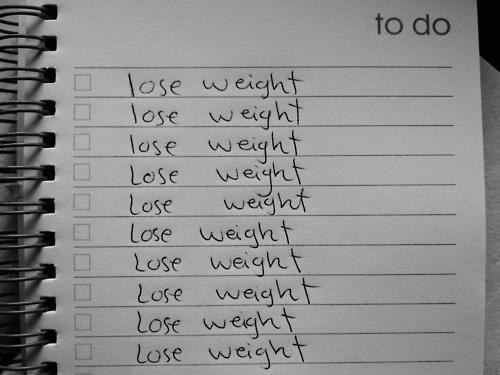 to do
lose weight
lose weight
lose weight
Lose weight
Lose weight
Lose weight
Lose weight
Lose weight
Lose weight
Lose weight